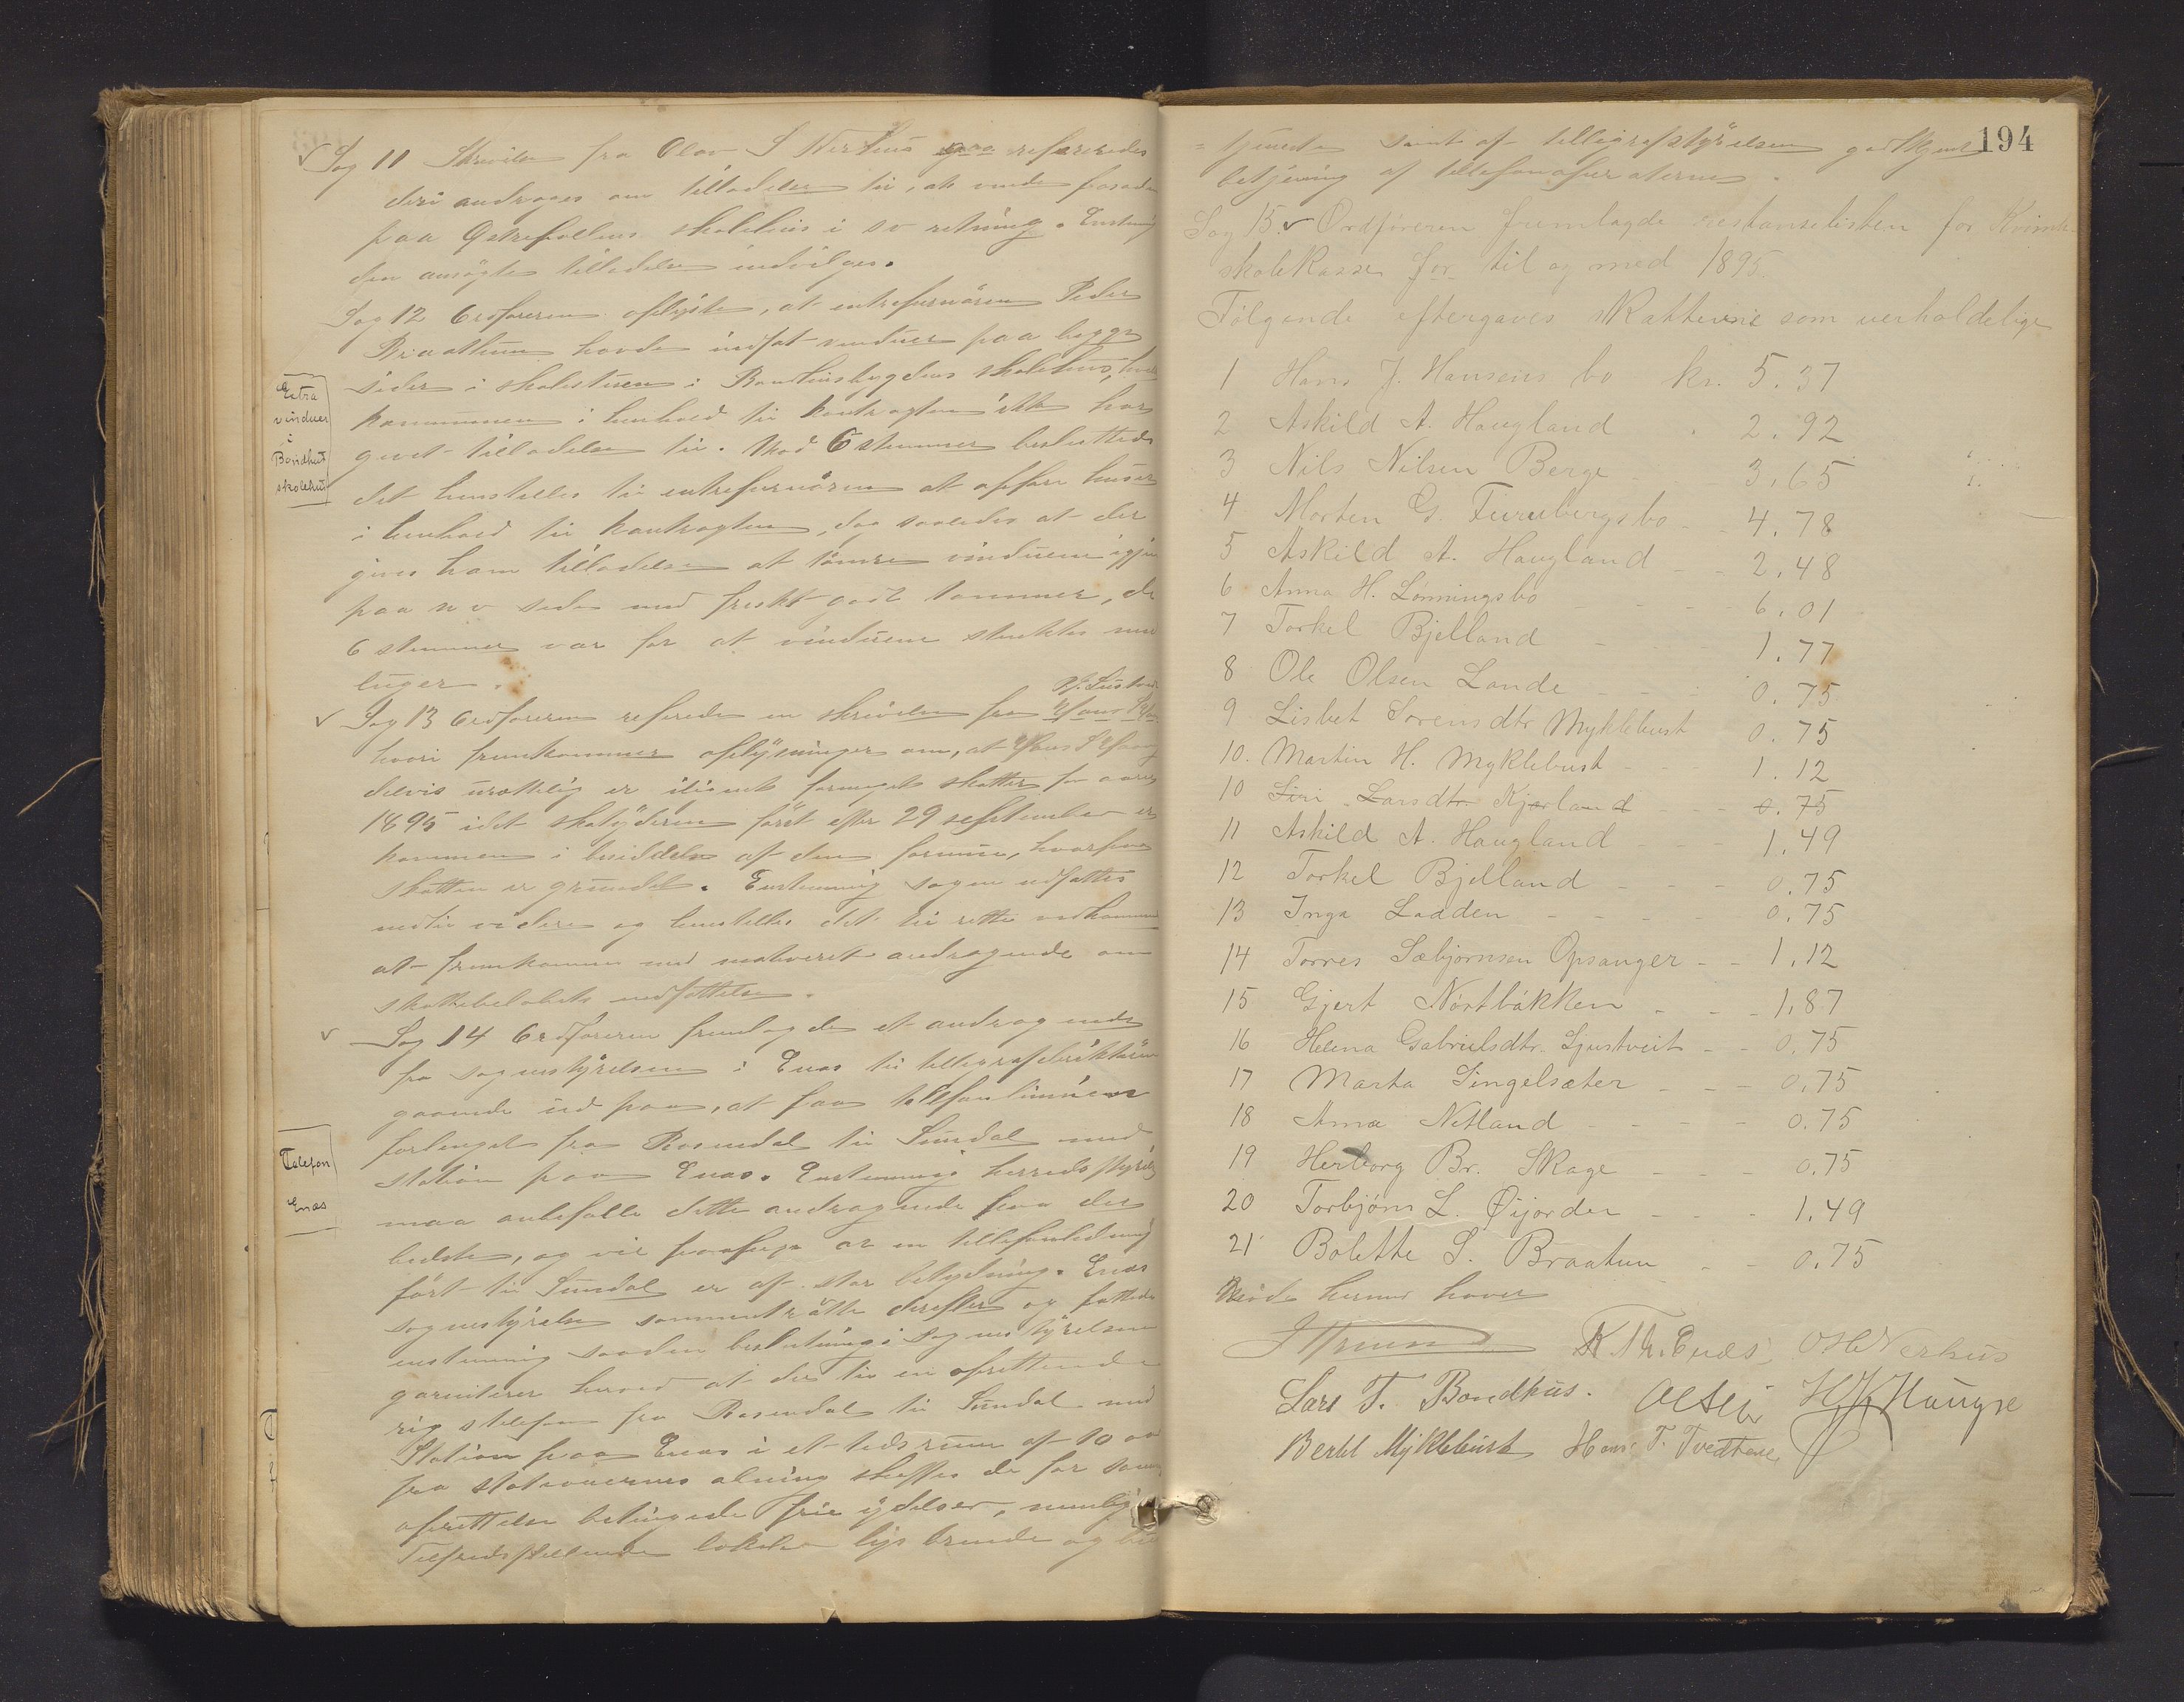 Sag 11 Skrivelse fra Olav S Nerhus refereredes
deri andrages om tilladelse til, at vende fasaden
paa skolehus i sv retning. Enstemmig
den ansøgte tilladelse indvilges.
Sag 12 Ordføreren oplyste, at entreprenøren Peder
Braathun havde indsat vinduer paa begge
sider i skolestuen i Bondhusbygdens skolehus,
kommunen i henhold til kontragten ikke har
givet tilladelse til. Mod 6 stemmer besluttedes
det henstilles til entreprenøren at opføre huset
i henhold til kontragten, dog saaledes at der
gives ham tilladelse at tømre vinduerne igjen
paa n v side med friskt godt tømmer, de
6 stemmer var for at vinduerne
luger.
Extra
vinduer
i
Bondhus
skolehus
Sag 13 Ordføreren referede en skrivelse fra
hvori fremkommer oplysninger om, at Hans
delvis urettelig er ilignet formuesskatter for aaret
1895 idet skatyderen først efter 29 september er
kommen i besiddelse af den formue, hvorpaa
skatten er grundet. Enstemmig sagen udsættes
indtil videre og henstilles det til rette vedkommende
at fremkomme med motiveret andragende om
skattebeløbets nedsættelse.
Sag 14 Ordføreren fremlagde et andragende
fra sognestyrelsen i Enæs til telegrafdirektøren
gaaende ud paa, at faa telefonlinien
forlenget fra Rosendal til Sundal med
station paa Enæs. Enstemmig herredsstyrelsen
maa anbefalle dette andragende paa det
bedste, og vil paapege at en tellefonledning
ført til Sundal er af stor betydning. Enæs
sognestyrelse sammentraatte derefter og fattede
enstemmig saadan beslutning: Sognestyrelsen
garenterer herved at der til en oprettende
rig stelefon fra Rosendal til Sundal med
Station paa Enæs i et tidsrum af 10 aar
fra stationernes aabning skaffes de for saadan
oprettelse betingede frie ydelser, nemlig:
Tilfredsstillende lokaler lys brende og
Telefon
Enæs
194
tjeneste samt af tellegrafstyrelsen godkjent
betjening af tellefonapparaterne.
Sag 15. Ordføreren fremlagde restanselisten for Kvinh.
skolekasse for til og med 1895.
Følgende eftergaves skatterne som uerholdelige
1 Hans J. Hansens bo kr. 5.37
2 Askild A. Haugland 2.92
3 Nils Nilsen Berge 3.65
4 Morten G. Furebergs bo 4.78
5 Askild A. Haugland 2.48
6 Anna H. Lønnings bo 6.01
7 Torkel Bjelland 1.77
8 Ole Olsen Lande 0.75
9 Lisbet Sorensdtr Myklebust 0.75
10. Martin H. Myklebust 1.12
10 Siri Larsdtr. Kjærland 0.75
11 Askild A. Haugland 1.49
12 Torkel Bjelland 0.75
13 Inga Ladden 0.75
14 Torres Sæbjørnsen Opsanger 1.12
15 Gjert Nortbakken 1.87
16 Helena Gabrielsdtr. Ljustveit 0.75
17 Marta Singelsæter 0.75
18 Anna Netland 0.75
19 Herborg Br. Skage 0.75
20 Torbjörn L. Øijorden 1.49
21 Bolette S. Braatun 0.75
Møde hermed hævet
K Th. Enæs. O S Nerhus
Lars T. Bondhus. H Haugse
Bertel Myklebust Hans T. Tvedtene